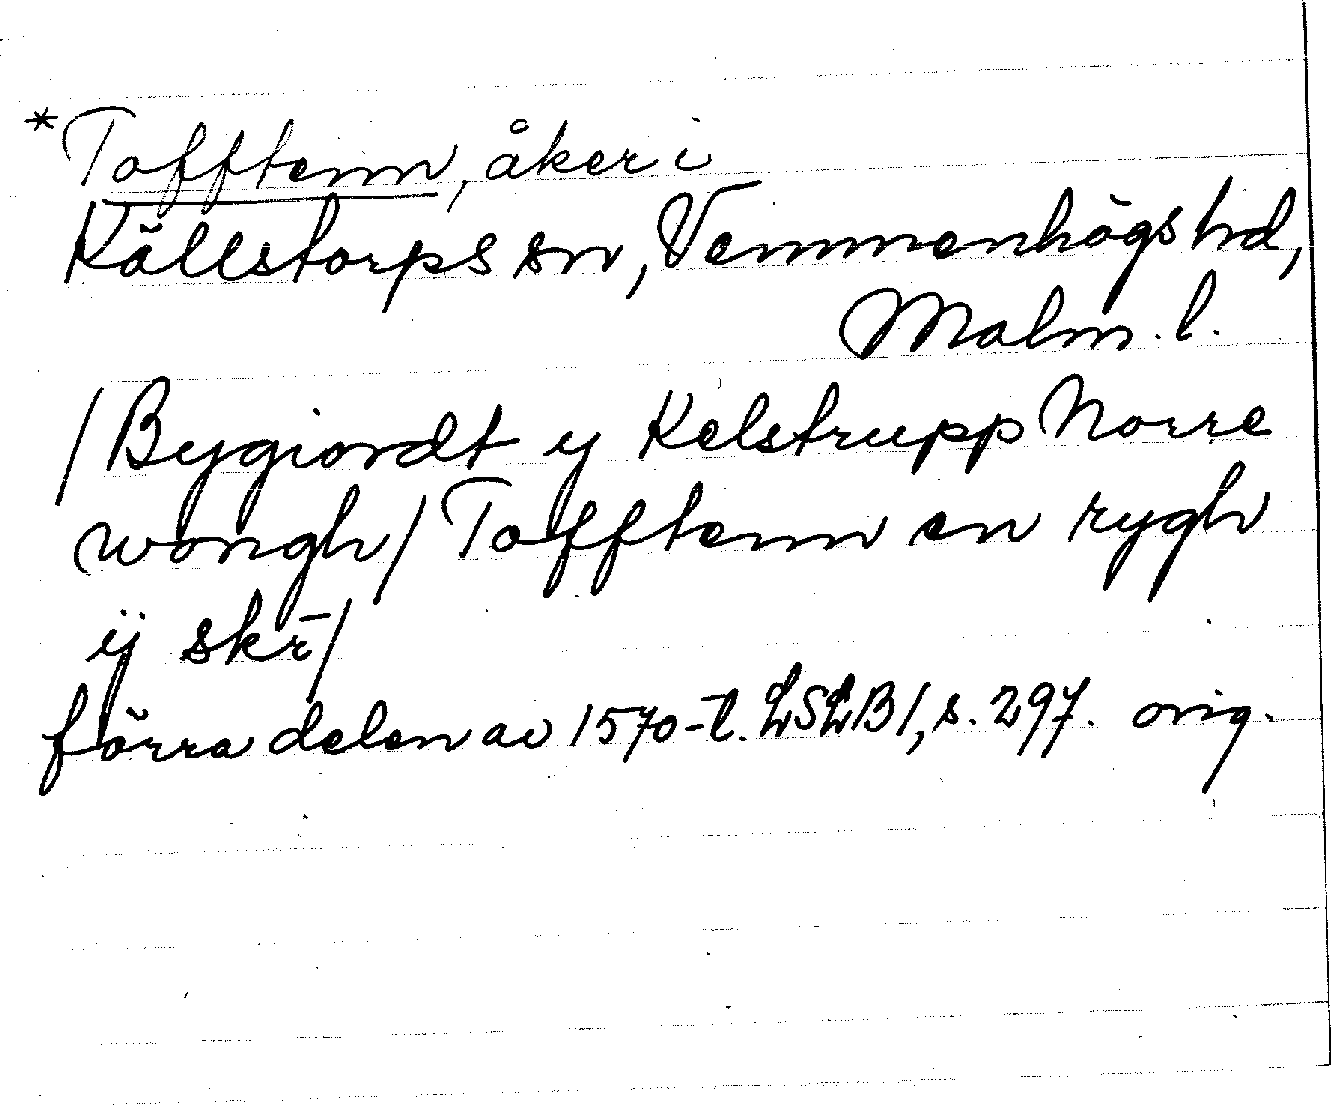 *Tofftenn, åker i
Källstorps sn, Vemmenhögs hd,
Malm. l.
/Bygiordt y Kelstrupp Norre
wongh/ Tofftenn en rygh
ij skr̄/
förra delen av 1570-t. LSLB1, s. 297. orig.